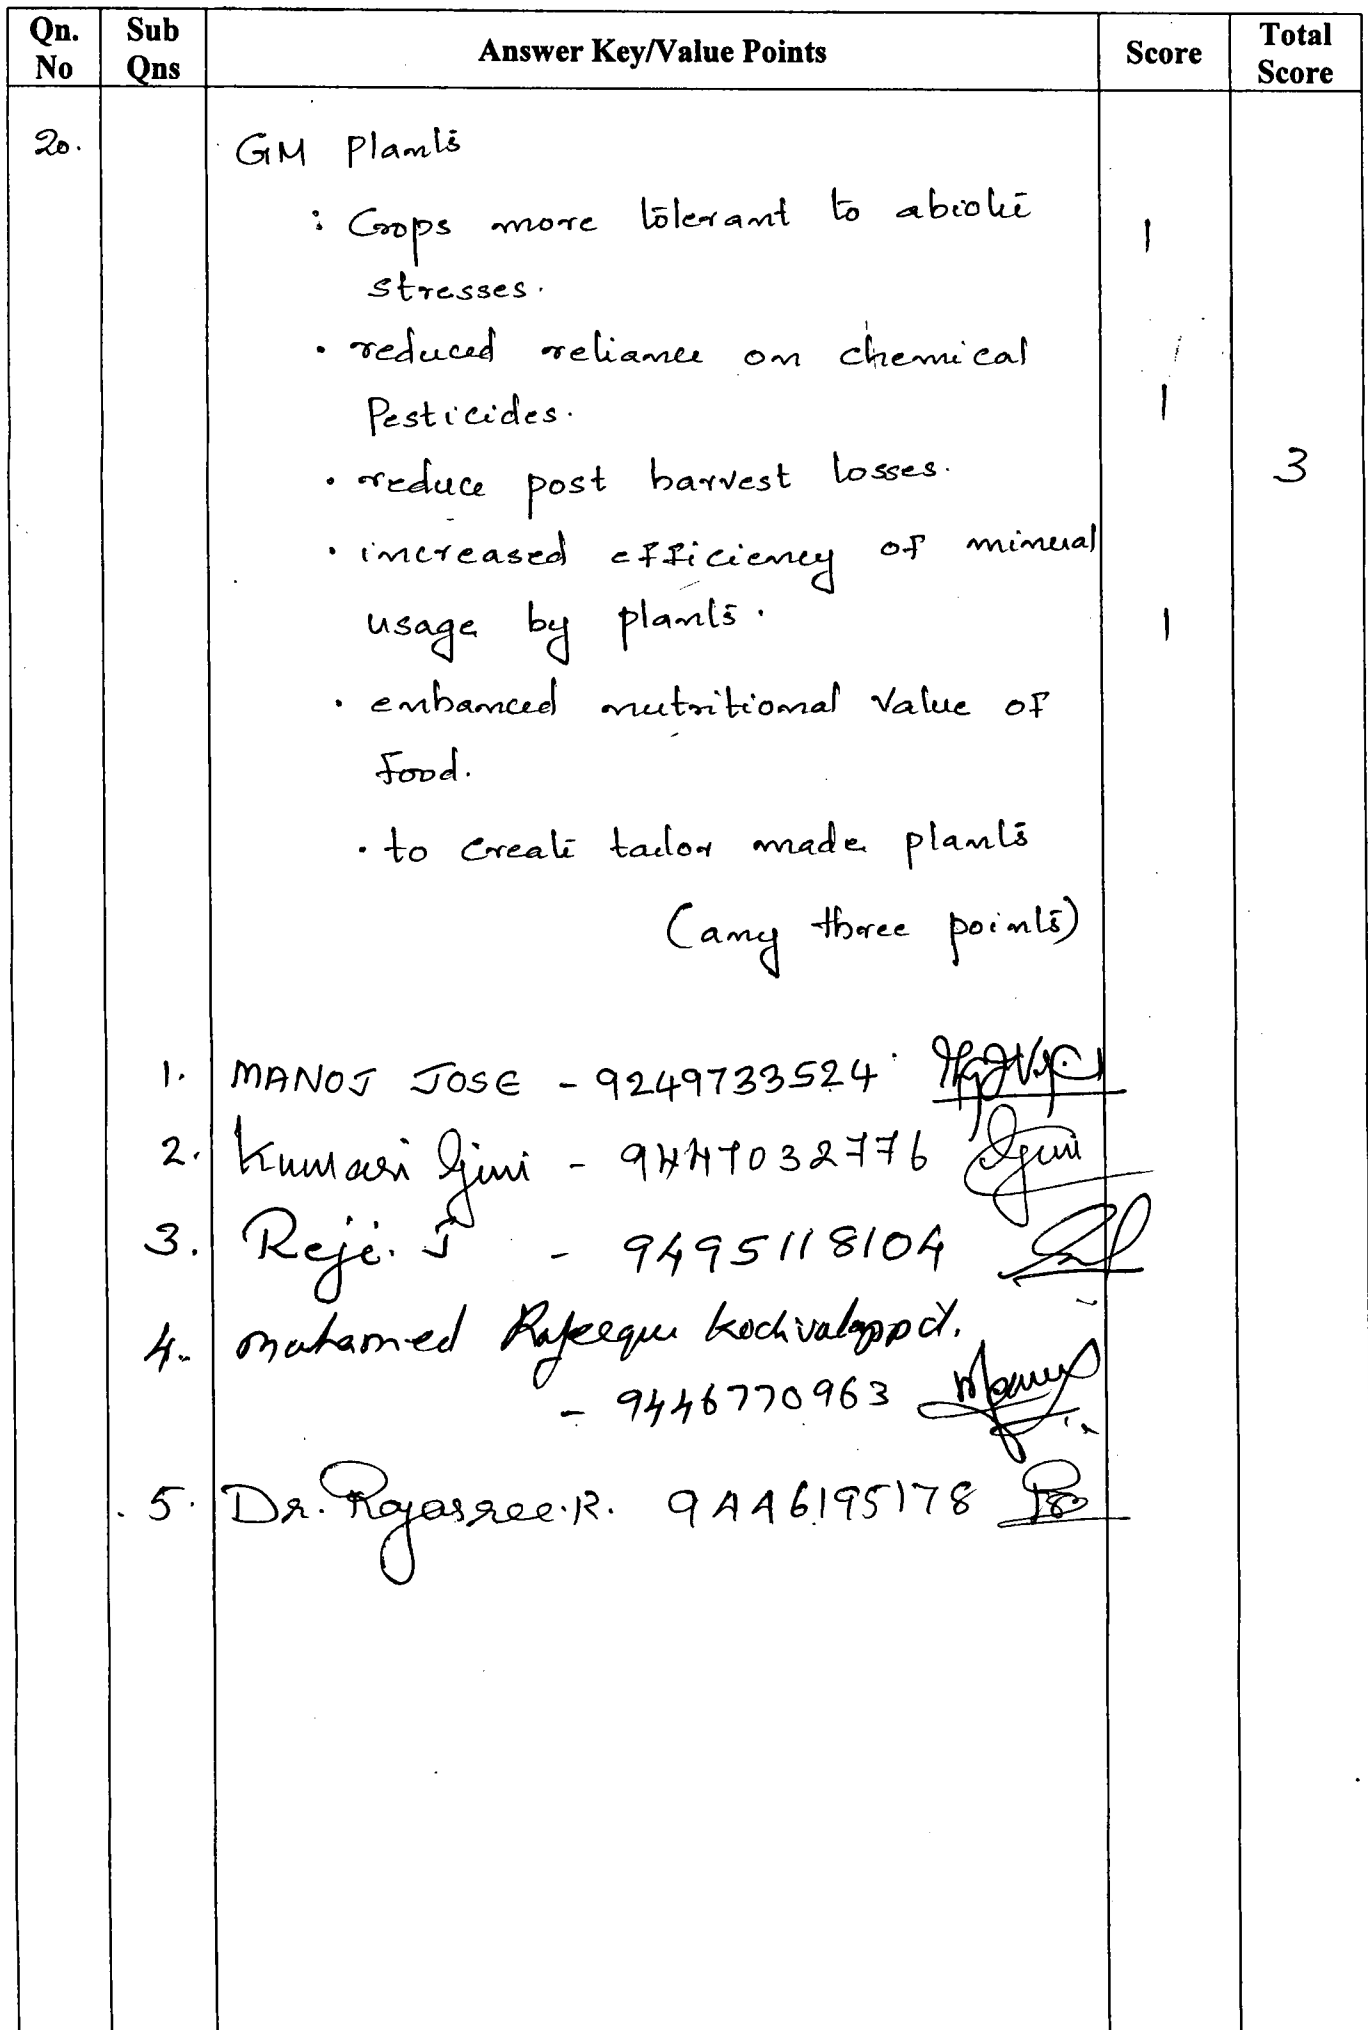 Qn. No | Sub Qns | Answer Key/Value Points | Score | Total Score
20. GM Plants
: Crops more tolerant to abiotic 1
stresses.
• reduced reliance on chemical
Pesticides. 1
• reduce post harvest losses. 3
• increased efficiency of mineral
usage by plants. 1
• enhanced nutritional value of
food.
• to create tailor made plants
(any three points)
1. MANOJ JOSE - 9249733524
2. Kumari Gini - 9447032776
3. Reji. J - 9495118104
4. mohamed Rafeeque
- 9446770963
5. Dr. Rajasree.R. 9446195178